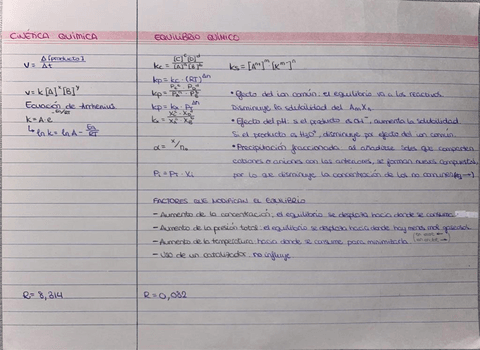 CINÉTICA QUÍMICA
V = Δ[producto] / Δt
v = k [A]^x [B]^y
Ecuación de Arrhenius
k = A · e^-Ea/RT
ln k = ln A - Ea/RT
R = 8,314
EQUILIBRIO QUÍMICO
Kc = [C]^c [D]^d / [A]^a [B]^b
Kp = Kc · (RT)^Δn
Kp =
Kp = Kx · PT^Δn
Kx =
α = x/n₀
Pi = PT · Xi
Ks = [A^m]^m [X^m-]^n
• Efecto del ion común: el equilibrio va a los reactivos
Disminuye la solubilidad del AmXn
• Efecto del pH: si el producto es OH⁻, aumenta la solubilidad
Si el producto es H₃O⁺, disminuye por efecto del ion común.
• Precipitación fraccionada: al añadirse sales que comparten
cationes o aniones con las anteriores, se forman nuevos compuestos,
por lo que disminuye la concentración de los no comunes
FACTORES QUE MODIFICAN EL EQUILIBRIO
- Aumento de la concentración: el equilibrio se desplaza hacia donde se consume
- Aumento de la presión total: el equilibrio se desplaza hacia donde hay menos moles gaseosos
- Aumento de la temperatura: hacia donde se consume para minimizarla
- Uso de un catalizador: no influye
R = 0,082